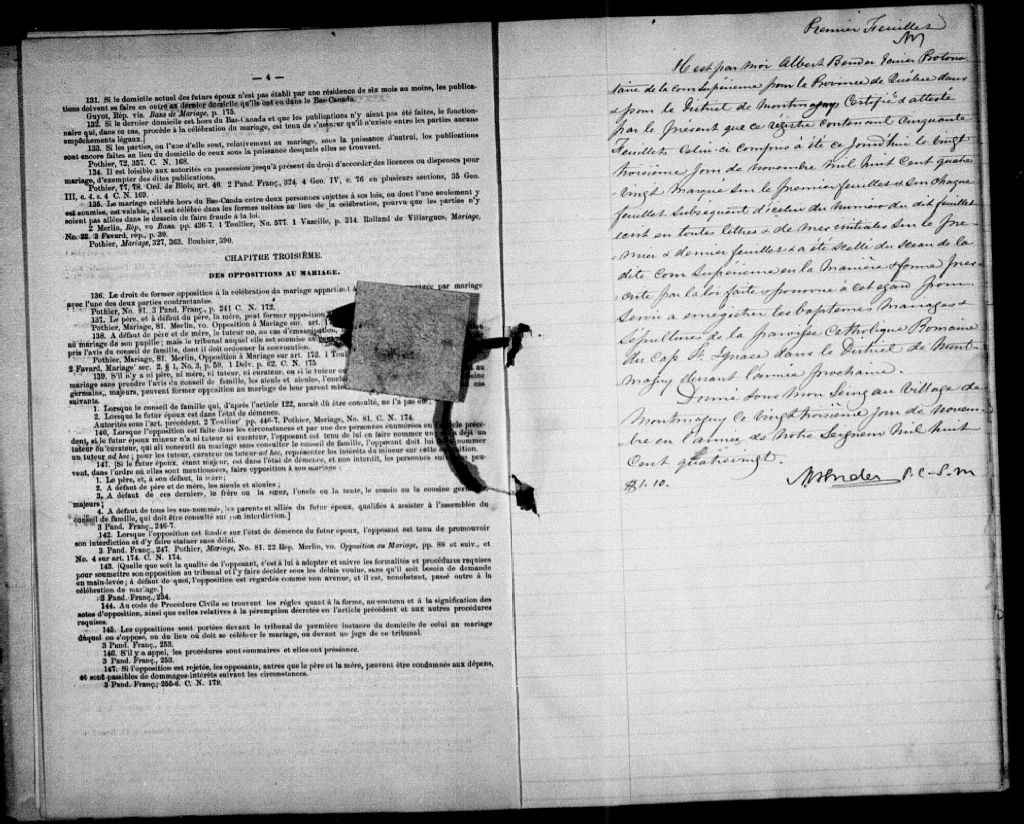 — 4 —
131. Si le domicile actuel des futurs époux n'est pas établi par une résidence de six mois au moins, les publica-
tions doivent se faire en outre au dernier domicile qu'ils ont eu dans le Bas-Canada.
Guyot, Rép. vis. Bans de Mariage, p. 175.
132. Si le dernier domicile est hors du Bas-Canada et que les publications n'y aient pas été faites, le fonction-
naire qui, dans ce cas, procède à la célébration du mariage, est tenu de s'assurer qu'il n'existe entre les parties aucuns
empêchements légaux.
133. Si les parties, ou l'une d'elle sont, relativement au mariage, sous la puissance d'autrui, les publications
sont encore faites au lieu du domicile de ceux sous la puissance desquels elles se trouvent.
Pothier, 72, 357. C. N. 168.
134. Il est loisible aux autorités en possession jusqu'à présent du droit d'accorder des licences ou dispenses pour
mariage, d'exempter des dites publications.
Pothier, 77, 78. Ord. de Blois, art. 40. 2 Pand. Franç., 324, 4 Geo. IV, c. 76 en plusieurs sections, 35 Geo.
III, c. 4. s. 4 C. N. 169.
135. Le mariage célébré hors du Bas-Canada entre deux personnes sujettes à ses lois, ou dont l'une seulement y
est soumise, est valable, s'il est célébré dans les formes usitées au lieu de la célébration, pourvu que les parties n'y
soient pas allées dans le dessein de faire fraude à la loi.
2 Merlin, Rép, vo Bans. pp. 436-7. 1 Toullier, No. 577. 1 Vazeille, p. 314. Rolland de Villargues, Mariage,
No. 22. 3 Favard, rep., p. 30.
Pothier, Mariage, 327, 363. Bouhier, 390.
CHAPITRE TROISIÈME.
DES OPPOSITIONS AU MARIAGE.
136. Le droit de former opposition à la célébration du mariage appartient à par mariage
avec l'une des deux parties contractantes.
Pothier, No. 81. 3 Pand. Franç., p. 241 C. N. 172.
137. Le père, et à défaut du père, la mère, peut former opposition
Pothier, Mariage, 81. Merlin, vo. Opposition à Mariage sur. art.
138. A défaut de père et de mère, le tuteur ou, au cas d'émancipation,
au mariage de son pupille ; mais le tribunal auquel elle est soumise
pris l'avis du conseil de famille, dont il doit ordonner la convocation.
Pothier, Mariage, 81. Merlin, Opposition à Mariage sur art. 172. 1
2 Favard, Mariage sec. 2. § 1, No. 3, p. 59. 1 Delv. p. 62. C. N. 175
139. S'il n'y a ni père, ni mère, ni tuteur, ni curateur, ou si le tuteur
mariage sans prendre l'avis du conseil de famille, les aïeuls et aïeules, l'oncle
germains, majeurs, peuvent former opposition au mariage de leur parent cas
suivants.
1. Lorsque le conseil de famille qui, d'après l'article 122, aurait dû être consulté, ne l'a pas été ;
2. Lorsque le futur époux est dans l'état de démence.
Autorités sous l'art. précédent. 2 Toullier pp. 446-7. Pothier, Mariage, No. 81. C. N. 174.
140. Lorsque l'opposition est faite dans les circonstances et par une des personnes énumérées en précé-
dent, si le futur époux mineur n'a ni tuteur ni curateur, l'opposant est tenu de lui en faire nommer un déjà un
tuteur ou curateur, qui ait consenti au mariage sans consulter le conseil de famille, l'opposant doit lui nommer
un tuteur ad hoc ; pour les tuteur, curateur ou tuteur ad hoc, représenter les intérêts du mineur sur cette opposition.
141. [Si le futur époux, étant majeur, est dans l'état de démence, et non interdit, les personnes peu-
vent, dans l'ordre où elles sont mentionnées, faire opposition à son mariage :
1. Le père, et, à son défaut, la mère ;
2. A défaut de père et de mère, les aïeuls et aïeules ;
3. A défaut de ces derniers, le frère ou la sœur, l'oncle ou la tante, le cousin ou la cousine germ
majeurs ;
4. A défaut de tous les sus-nommés, les parents et alliés du futur époux, qualifiés à assister à l'assemblée du
conseil de famille, qui doit être consulté sur son interdiction.]
3 Pand. Franç., 246-7.
142. Lorsque l'opposition est fondée sur l'état de démence du futur époux, l'opposant est tenu de promouvoir
son interdiction et d'y faire statuer sans délai.
3 Pand. Franç., 247. Pothier, Mariage, No. 81. 22 Rép. Merlin, vo. Opposition au Mariage, pp. 88 et suiv., et
No. 4 sur art. 174. C. N. 174.
143. [Quelle que soit la qualité de l'opposant, c'est à lui à adopter et suivre les formalités et procédures requises
pour soumettre son opposition au tribunal et l'y faire décider sous les délais voulus, sans qu'il soit besoin de demande
en main-levée ; à défaut de quoi, l'opposition est regardée comme non avenue, et il est, nonobstant, passé outre à la
célébration du mariage.]
3 Pand. Franç., 254.
144. Au code de Procedure Civile se trouvent les règles quant à la forme, au contenu et à la signification des
actes d'opposition, ainsi que celles relatives à la péremption décrétée en l'article précédent et aux autres procédures
requises.
145. Les oppositions sont portées devant le tribunal de première instance du domicile de celui au mariage
duquel on s'oppose, ou du lieu où doit se célébrer le mariage, ou devant un juge de ce tribunal.
3 Pand. Franç., 253.
146. S'il y a appel, les procédures sont sommaires et elles ont préséance.
3 Pand. Franç., 253.
147. Si l'opposition est rejetée, les opposants, autres que le père et la mère, peuvent être condamnés aux dépens,
et sont passibles de dommages-intérêts suivant les circonstances.
3 Pand. Franç., 255-6. C. N. 179.
Premier Feuillet
Il est par moi Albert Bender Ecuier Protono
taire de la cour Supérieure pour la Province de Québec dans
& pour le District de Montmagny Certifié & attesté
par le présent que ce registre contenant Cinquante
Feuillets Celui-ci compris a été ce Jourd'hui le vingt
troisième jour de novembre mil huit Cent quatre
vingt marqué sur le premier feuillet & sur chaque
feuillet subséquent d'icelui du numéro du dit feuillet
écrit en toutes lettres & de mes initiales sur le pre-
mier & dernier feuillet & a été scellé du sceau de la
dite Cour Supérieure en la manière & forme pres-
crite par la loi faite & pourvue à cet égard pour
servir à enregistrer les baptêmes, mariages &
sépultures de la paroisse catholique Romaine
du Cap St. Ignace dans le District de Mont-
magny durant l'année prochaine.
Donné sous mon Seing au village de
Montmagny ce vingt troisième jour de novem-
bre en l'année de Notre Seigneur mil huit
Cent quatrevingt.
$1.10. ABender P.C.S.M